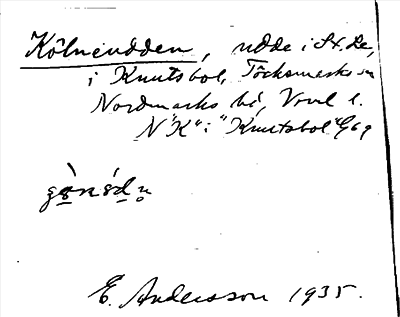 Kölneudden, udde i St. Le,
i Knutsbol, Töcksmarks sn
Nordmarks hd, Vrml l.
N "K" i "Knutsbol" G69
E. Andersson 1935.